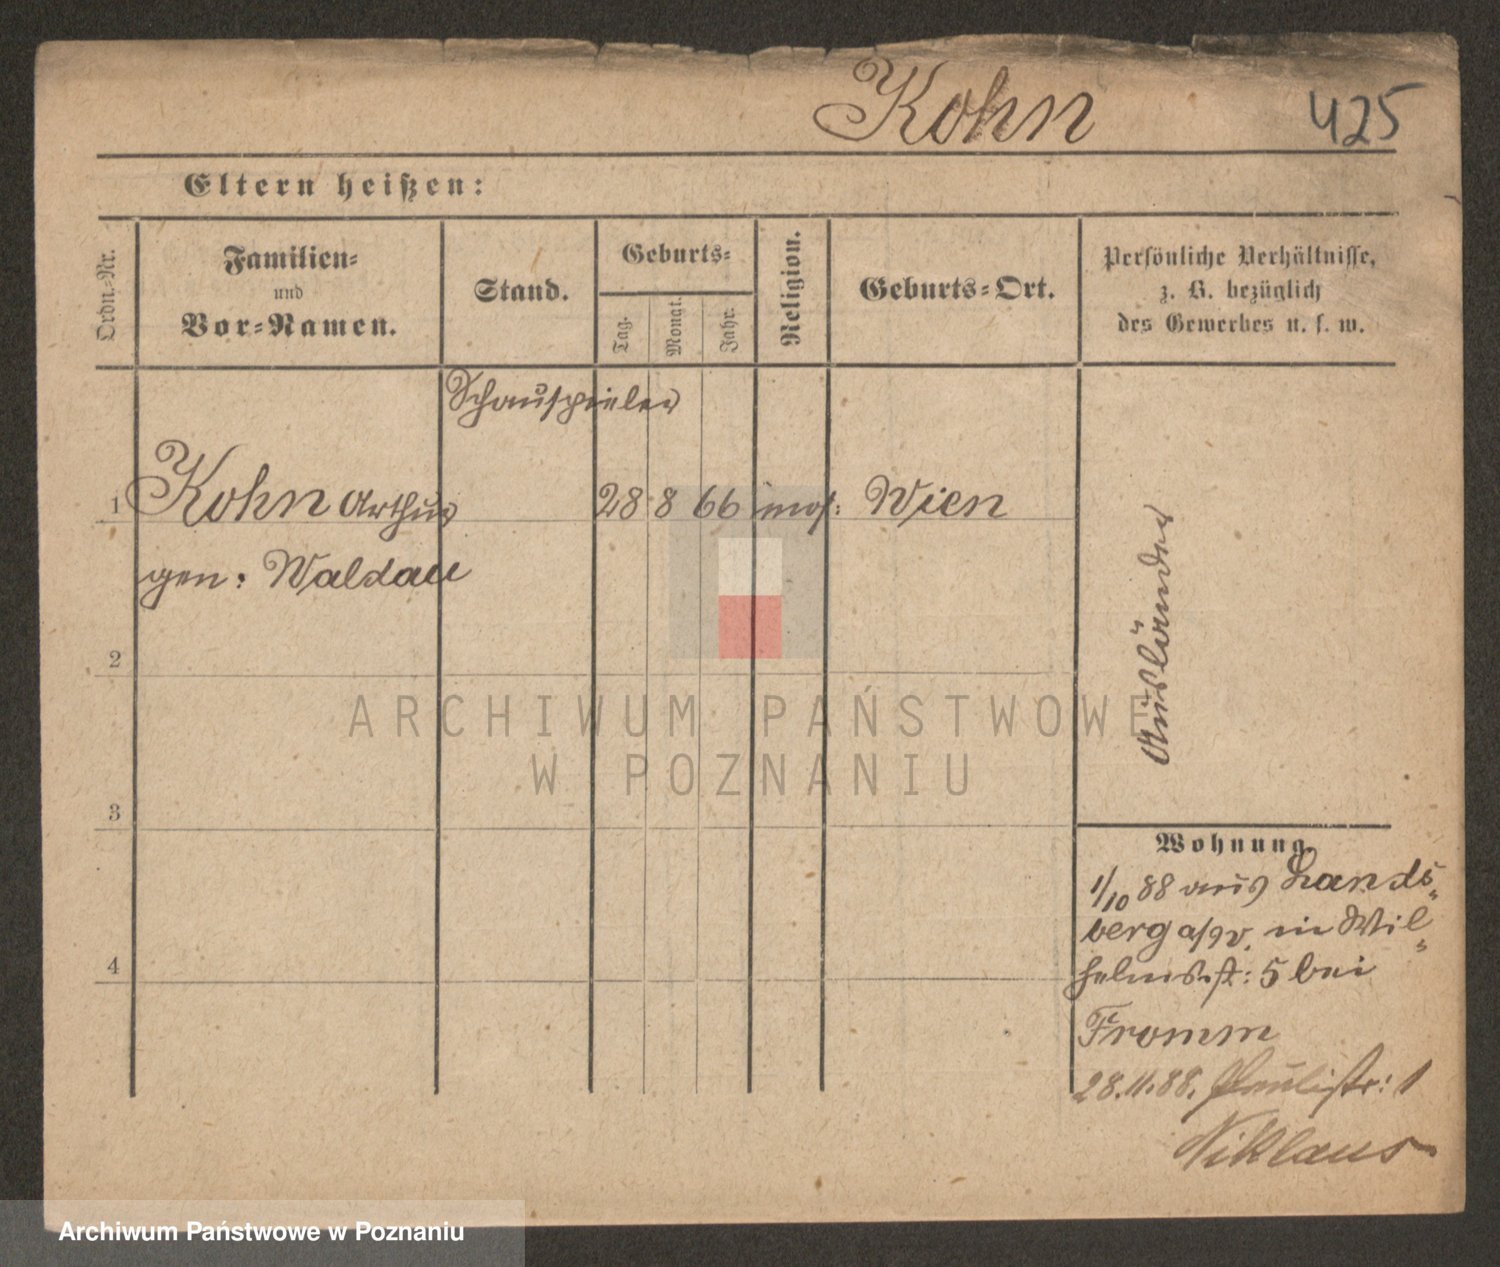 Kohn 425
Eltern heißen:
Ordn.-Nr.
Familien-
und
Vor-Namen.
Stand.
Geburts-
Tag.
Monat.
Jahr.
Religion.
Geburts-Ort.
Persönliche Verhältnisse,
z. B. bezüglich
des Gewerbes u. s. w.
Schauspieler
1 Kohn Arthur 28 8 66 mos: Wien
gen: Waldau
Ausländer
2
3
4
Wohnung
1/10 88 aus Lands-
berg a/W. in Wil-
helmsst: 5 bei
Fromm
28.11.88. Paulistr: 1
Niklaus
ARCHIWUM PAŃSTWOWE
W POZNANIU
Archiwum Państwowe w Poznaniu